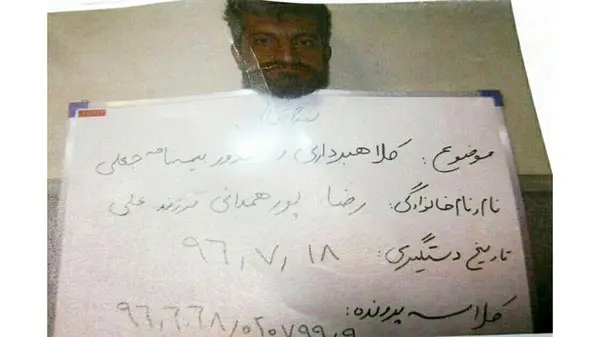 موضوع: کلاهبرداری و صدور بیمه‌نامه جعلی
نام و نام خانوادگی: رضا پورهمدانی فرزند علی
تاریخ دستگیری: ۹۶/۷/۱۸
کلاسه پرونده: